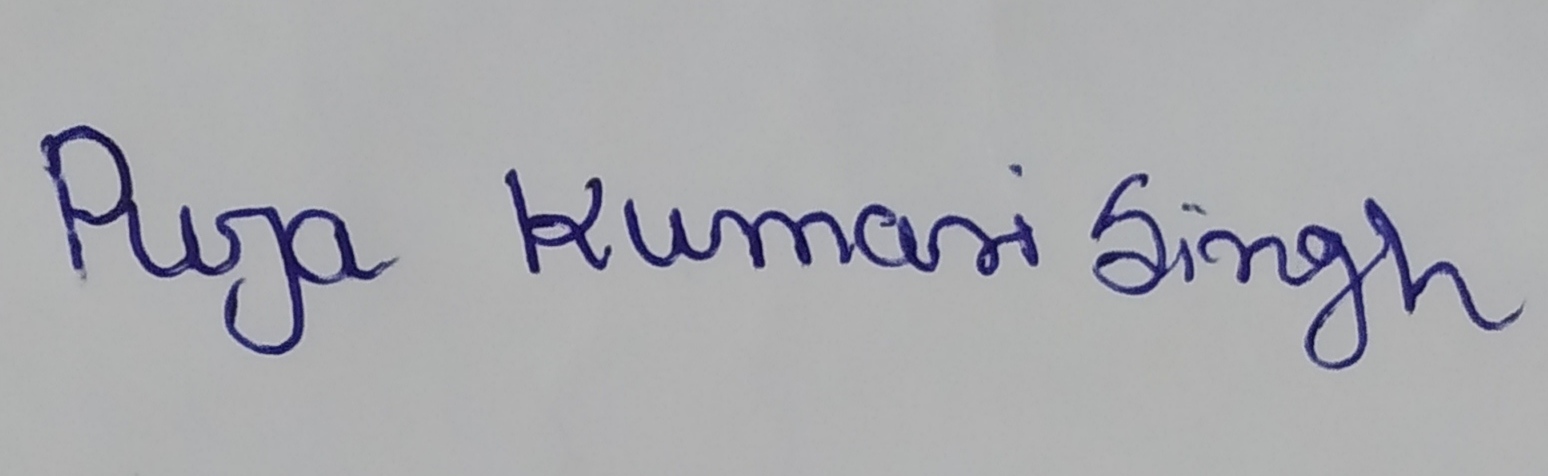 Puja Kumari Singh